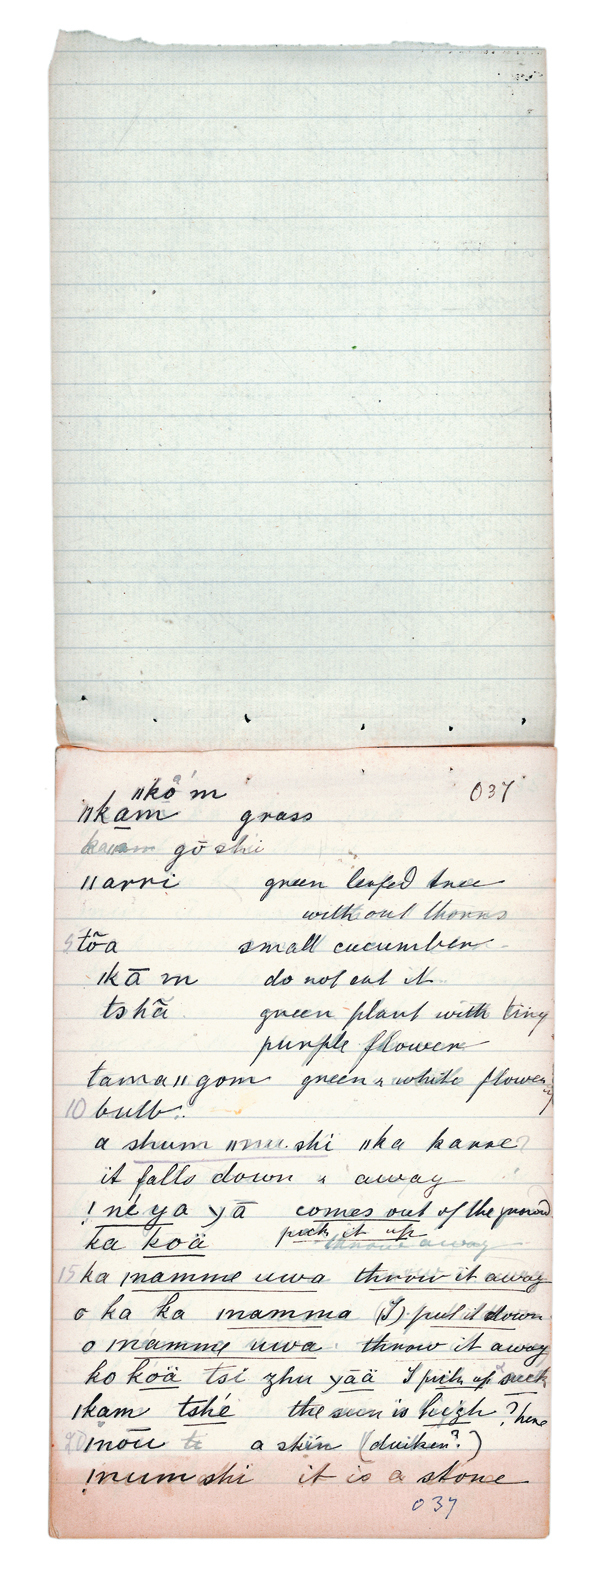 ǁkȧ'm
037
ǁkām grass
gō shii
ǁarri green leafed tree
without thorns
5 tõa small cucumber
ǀkā m do not eat it
tshã green plant with tiny
purple flower
tamaǁgom green & white flower
10 bulb.
a shum shi ǁka karre?
it falls down & away
!né ya yā comes out of the ground
ka koä pick it up
throw away
15 ka ǀnamme uwa throw it away
o ka ka ǀnamma (I) put it down
o ǀnamme uwa throw it away
ko koä tsi zhu yāä I pick up suck
ǀkam tshé the sun is high? here
20 ǀnōu ti a skin (duiker?)
!num shi it is a stone
037